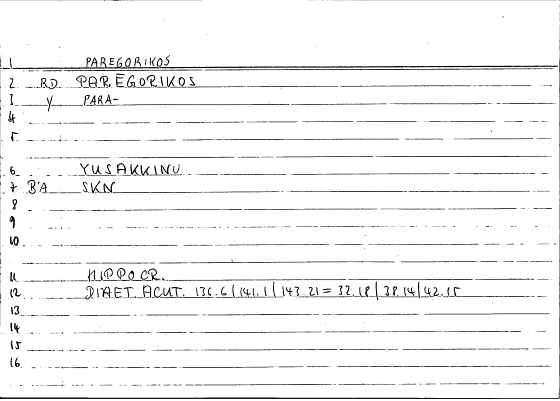 1 PAREGORIKOS
2 RD PARĒGORIKOS
3 Y PARA-
4
5
6 YUSAKKINU
7 B'A SKN
8
9
10
11 HIPPOCR.
12 DIAET. ACUT. 136.6 | 141.1 | 143.21 = 32.18 | 38.14 | 42.15
13
14
15
16